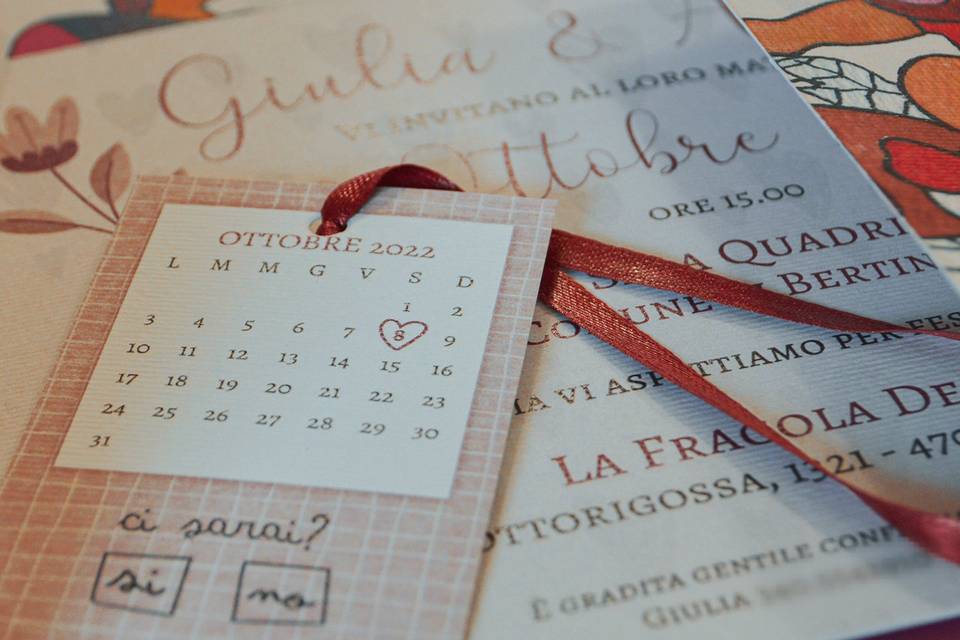 Giulia &
VI INVITANO AL LORO MA
Ottobre
ORE 15.00
A QUADRI
COMUNE DI BERTIN
MA VI ASPETTIAMO PER FES
LA FRAGOLA DE
OTTORIGOSSA, 1321 - 470
È GRADITA GENTILE CONF
GIULIA
OTTOBRE 2022
L M M G V S D
1 2
3 4 5 6 7 8 9
10 11 12 13 14 15 16
17 18 19 20 21 22 23
24 25 26 27 28 29 30
31
ci sarai?
si no